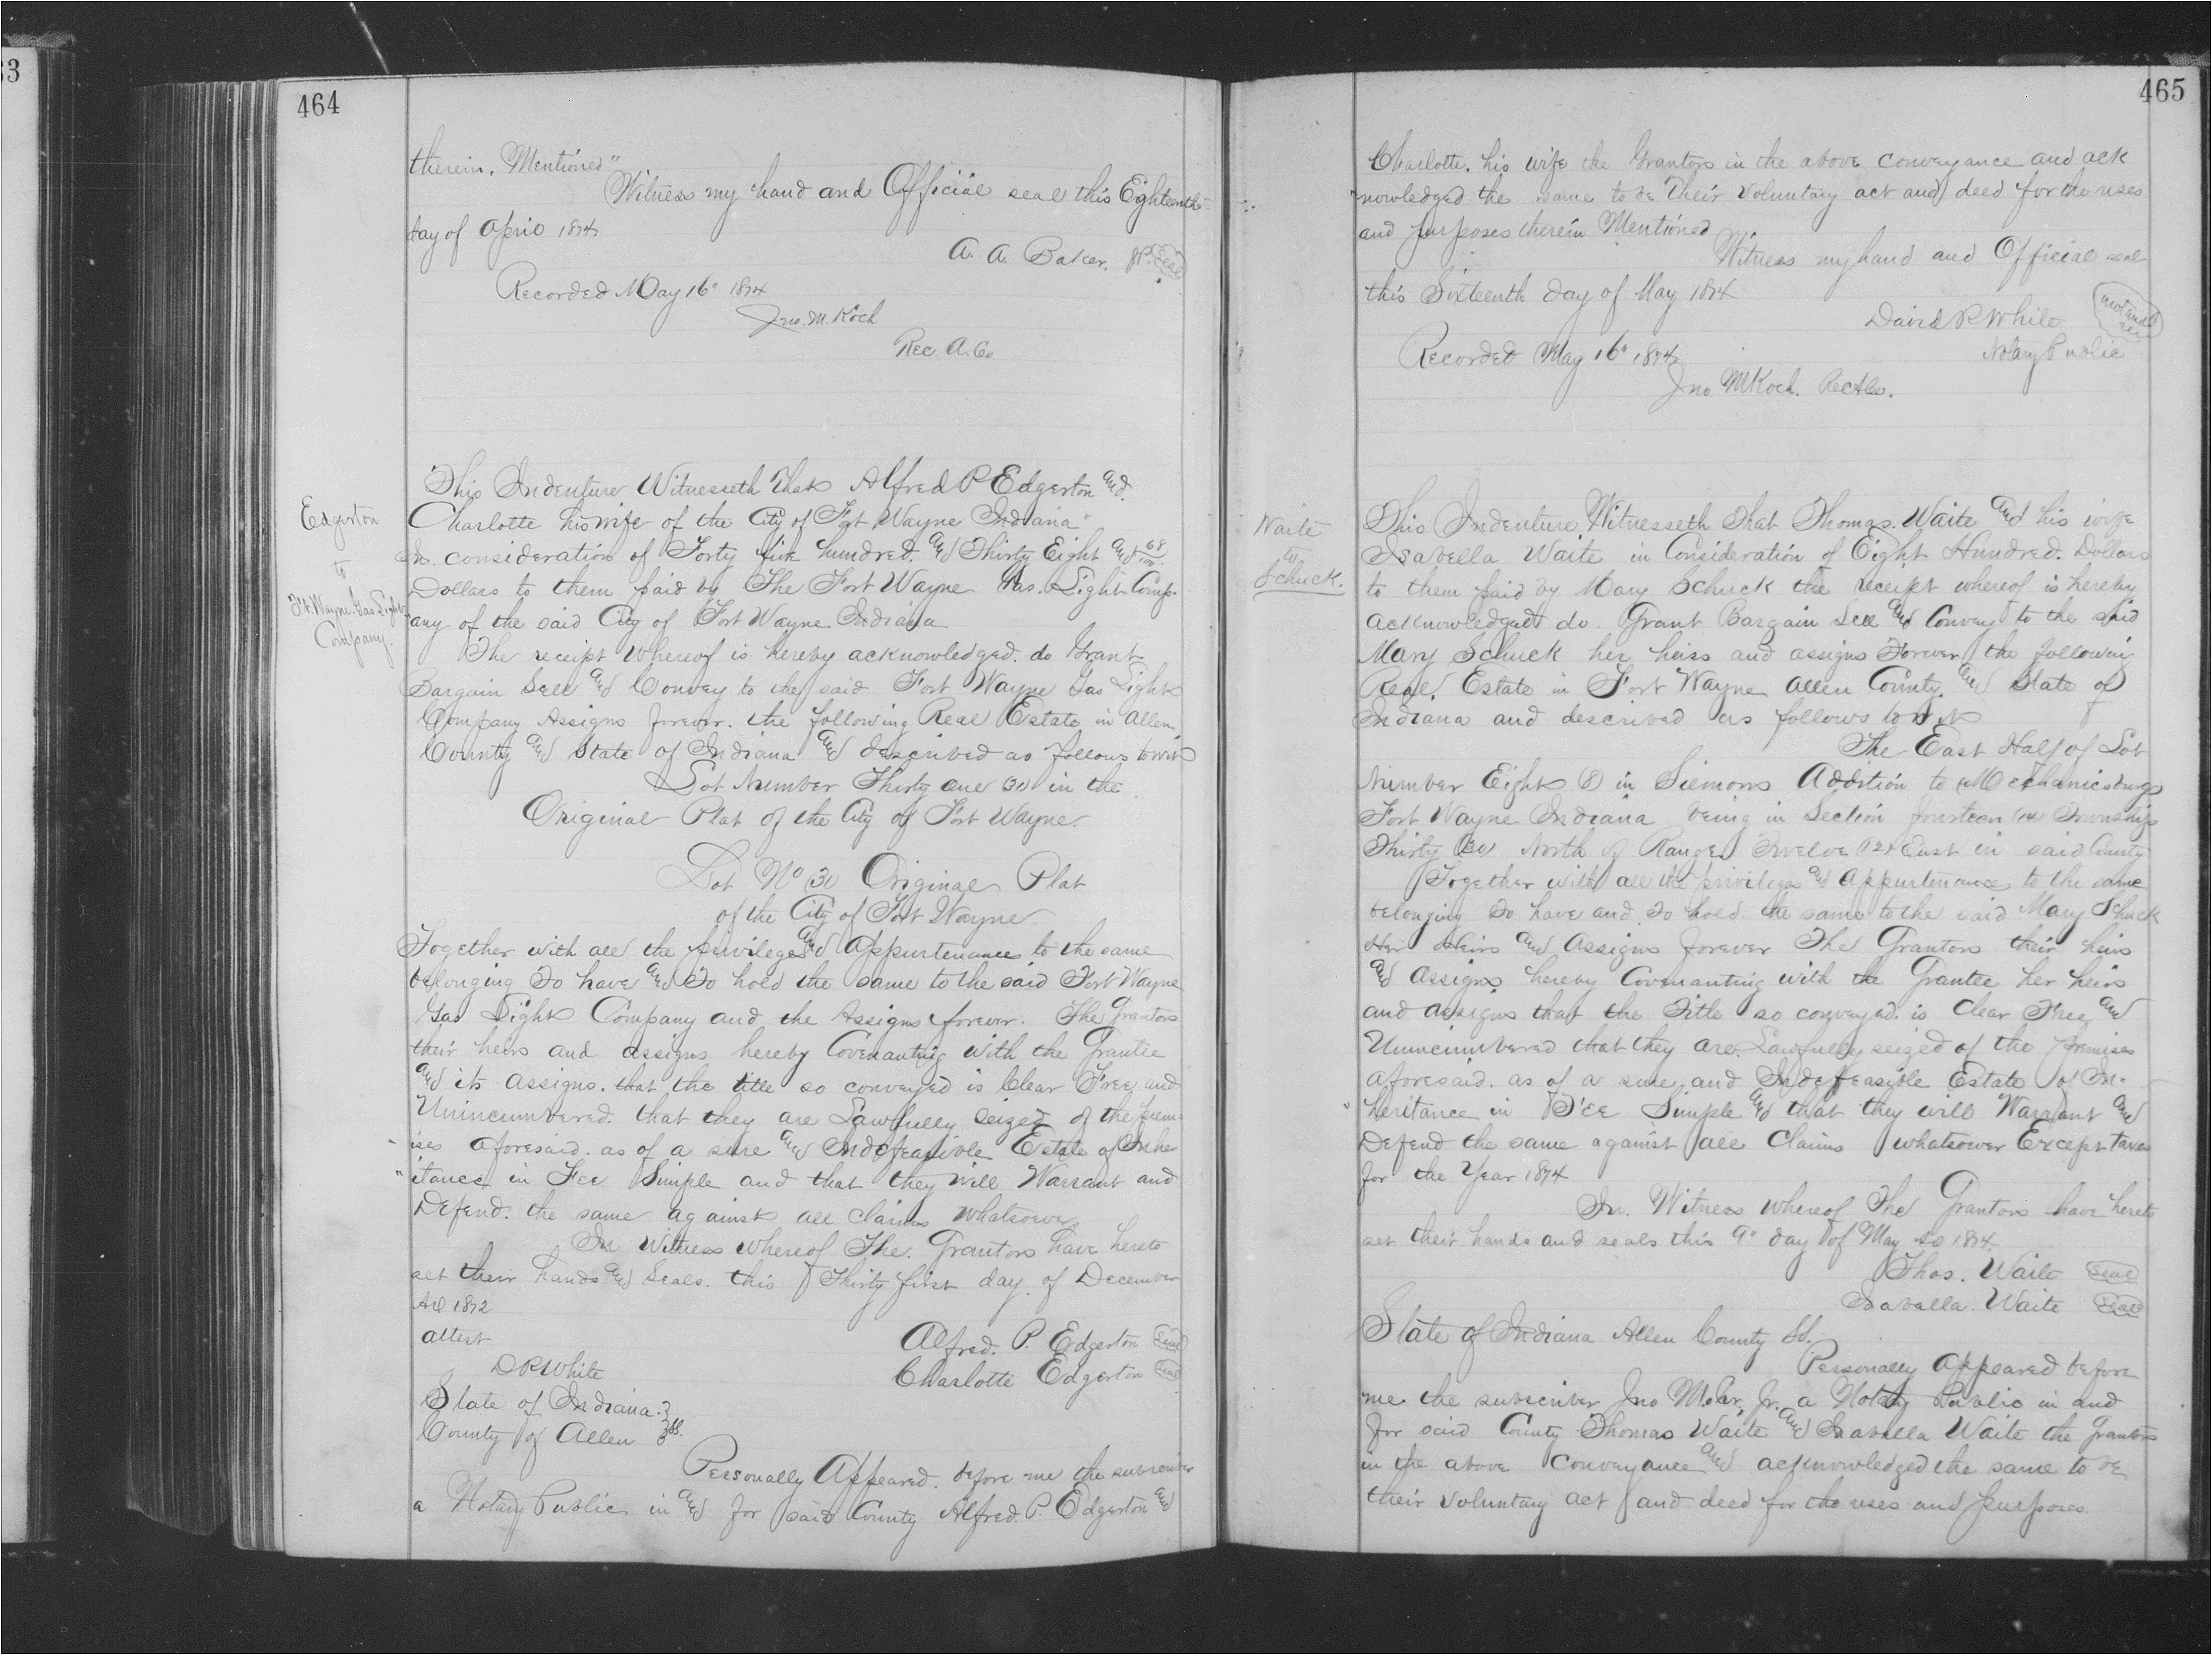 63
464
therein. Mentioned"
Witness my hand and Official seal this Eighteenth
day of April 1874
A. A. Baker. J.P. Seal
Recorded May 16" 1874
Jno. M. Koch
Rec. A. Co
Edgerton
to
Ft. Wayne Gas Light
Company.
This Indenture Witnesseth That Alfred P Edgerton and
Charlotte his wife of the City of Fort Wayne Indiana
In consideration of Forty five hundred and Thirty Eight and 68/100
Dollars to them paid by The Fort Wayne Gas. Light Comp-
"any of the said City of Fort Wayne Indiana
The receipt whereof is hereby acknowledged. do Grant
Bargain Sell and Convey to the said Fort Wayne Gas Light
Company Assigns forever. the following Real Estate in Allen
County and State of Indiana and described as follows towit
Lot Number Thirty one (31) in the
Original Plat of the City of Fort Wayne.
Lot No (31) Original Plat
of the City of Fort Wayne.
Together with all the privileges and appurtenances to the same
belonging To have and To hold the same to the said Fort Wayne
Gas Light Company and the Assigns forever. The Grantors
their heirs and assigns hereby Covenanting with the Grantee
and its assigns. that the title so conveyed is Clear Free and
Unincumbered. that they are Lawfully seized of the prem-
ises aforesaid. as of a sure and Indefeasible Estate of Inher
"itance in Fee Simple and that they will Warrant and
Defend. the same against all claims whatsoever
In Witness whereof The. Grantors have hereto
set their hands and Seals. this Thirty first day of December
AD 1872
attest
Alfred. P. Edgerton Seal
DR White
Charlotte Edgerton Seal
State of Indiana }
County of Allen } SS.
Personally Appeared. before me the subscriber
a Notary Public in and for said County Alfred. P. Edgerton and
465
Charlotte. his wife the Grantors in the above conveyance and ack
"nowledged the same to be their voluntary act and deed for the uses
and purposes therein Mentioned
Witness my hand and Official seal
this Sixteenth day of May 1874
David R White
Notary Public
Notarial Seal
Recorded May 16" 1874
Jno M Koch. Rec A Co.
Waite
to
Schuck.
This Indenture Witnesseth That Thomas. Waite and his wife
Isabella Waite in Consideration of Eight Hundred. Dollars
to them paid by Mary Schuck the receipt whereof is hereby
acknowledged do. Grant Bargain Sell and Convey to the said
Mary Schuck her heirs and assigns Forever the following
Real. Estate in Fort Wayne Allen County. and State of
Indiana and described as follows to wit
The East Half of Lot
Number Eight (8) in Siemons Addition to Mechanicsburg
Fort Wayne Indiana being in Section fourteen (14) Township
Thirty (30) North of Range Twelve (12) East in said County
Together with all the privileges and appurtenances to the same
belonging To have and To hold the same to the said Mary Schuck
Her Heirs and Assigns forever The Grantors their heirs
and assigns hereby Covenanting with the Grantee her heirs
and assigns that the Title so conveyed. is Clear Free and
Unincumbered that they are Lawfully seized of the premises
aforesaid. as of a sure and Indefeasible Estate of In-
"heritance in Fee Simple and that they will Warrant and
Defend the same against all Claims whatsoever Except taxes
for the Year 1874
In. Witness whereof The Grantors have hereto
set their hands and seals this 9" day of May AD 1874.
Thos. Waite Seal
Isabella. Waite Seal
State of Indiana Allen County SS.
Personally Appeared before
me the subscriber Jno Jr. a Notary Public in and
for said County Thomas Waite and Isabella Waite the Grantors
in the above Conveyance and acknowledged the same to be
their voluntary act and deed for the uses and purposes